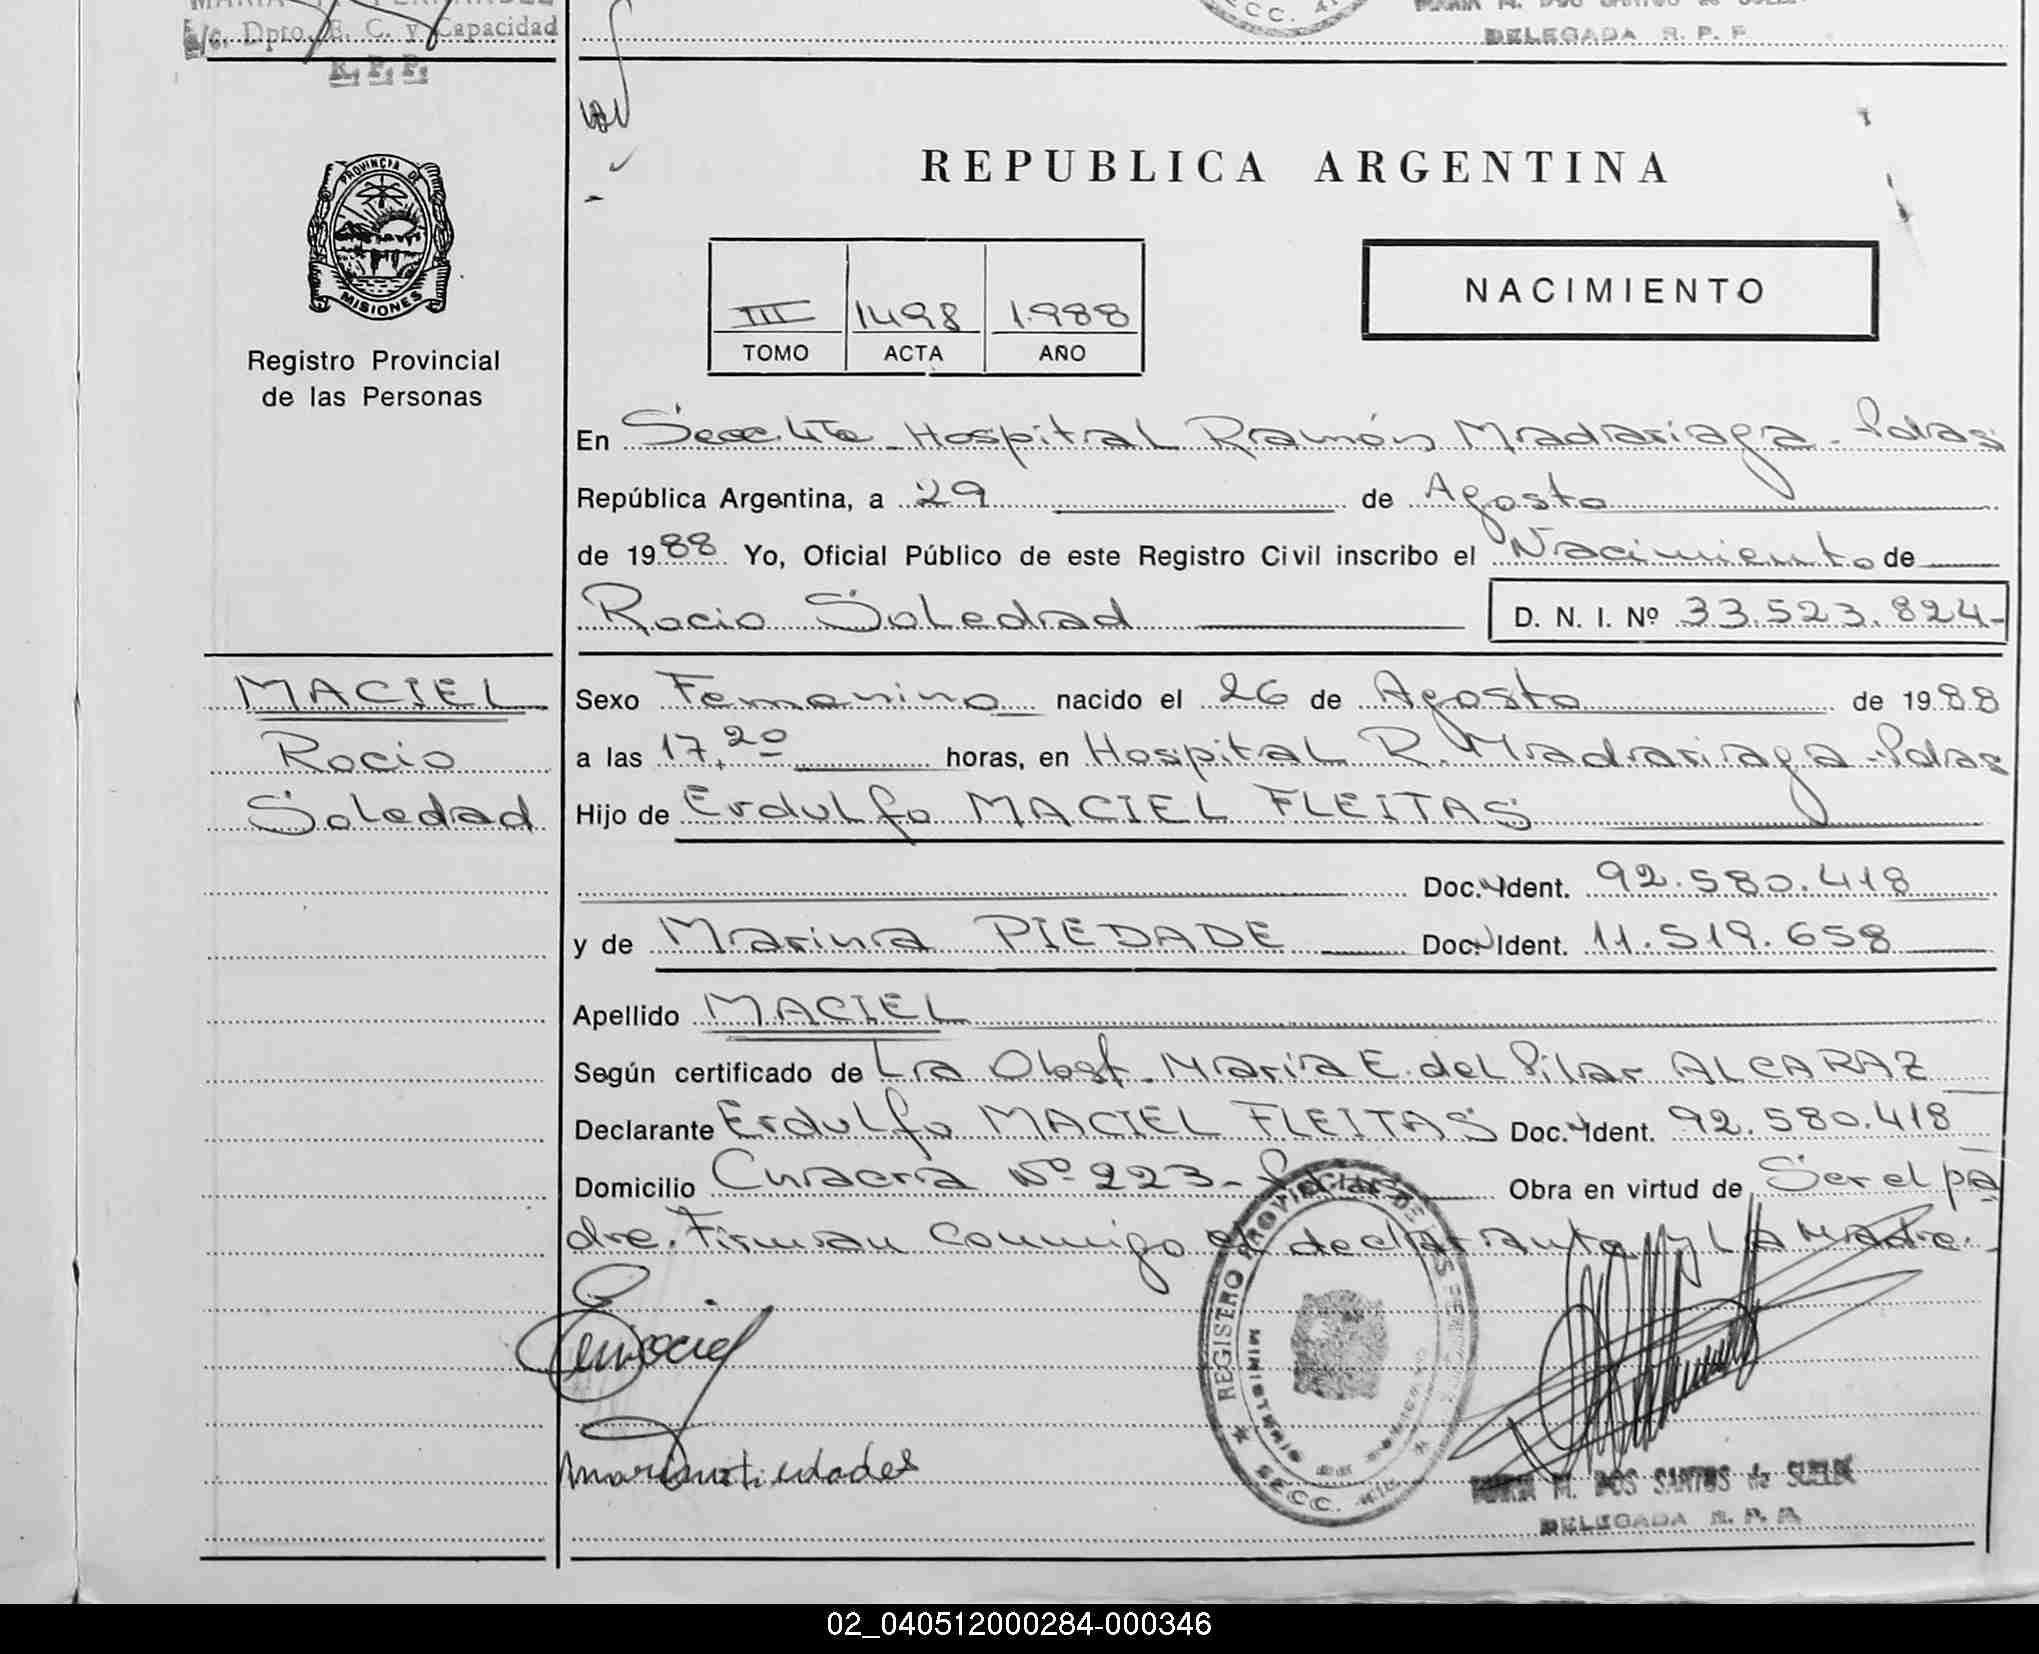 a/c. Dpto. E. C. y Capacidad
R. P. P.
DELEGADA R. P. P.
PROVINCIA DE
MISIONES
Registro Provincial
de las Personas
REPUBLICA ARGENTINA
NACIMIENTO
III 1498 1.988
TOMO ACTA AÑO
En Secc. 4ta Hospital Ramón Madariaga - Pdas
República Argentina, a 29 de Agosto
de 1988 Yo, Oficial Público de este Registro Civil inscribo el Nacimiento de
Rocio Soledad D. N. I. Nº 33.523.824-
MACIEL
Rocio
Soledad
Sexo Femenino nacido el 26 de Agosto de 1988
a las 17,20 horas, en Hospital R. Madariaga - Pdas
Hijo de Erdulfo MACIEL FLEITAS
Doc. Ident. 92.580.418
y de Marina PIEDADE Doc. Ident. 11.519.658
Apellido MACIEL
Según certificado de La Obst. María E. del Pilar ALCARAZ
Declarante Erdulfo MACIEL FLEITAS Doc. Ident. 92.580.418
Domicilio Nº 223- Obra en virtud de Ser el pa
dre. Firman conmigo el declarante y La Madre.
REGISTRO PROVINCIAL DE LAS
MARIA M. DOS SANTOS de
DELEGADA R. P. P.
02_040512000284-000346